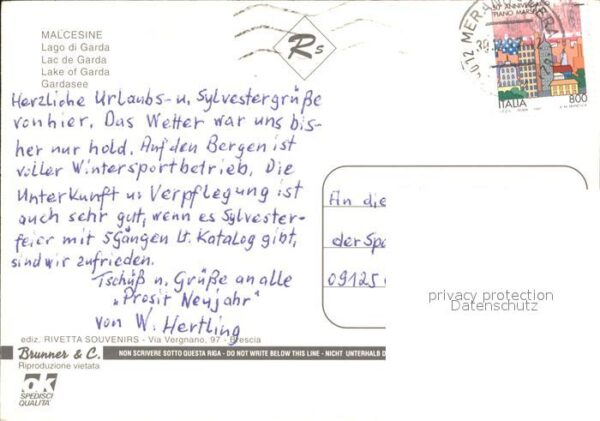 MALCESINE
Lago di Garda
Lac de Garda
Lake of Garda
Gardasee
Rs
50° ANNIVERSARIO
PIANO MARSHALL
ITALIA 800
Herzliche Urlaubs- u. Sylvestergrüße
von hier. Das Wetter war uns bis-
her nur hold. Auf den Bergen ist
voller Wintersportbetrieb. Die
Unterkunft u. Verpflegung ist
auch sehr gut, wenn es Sylvester-
feier mit 5 Gängen lt. Katalog gibt,
sind wir zufrieden.
Tschüß u. Grüße an alle
"Prosit Neujahr"
von W. Hertling
An die
der Spa
09125
privacy protection
Datenschutz
ediz. RIVETTA SOUVENIRS - Via Vergnano, 97 - Brescia
Brunner & C. NON SCRIVERE SOTTO QUESTA RIGA - DO NOT WRITE BELOW THIS LINE - NICHT UNTERHALB D
Riproduzione vietata
ok
SPEDISCI
QUALITA'